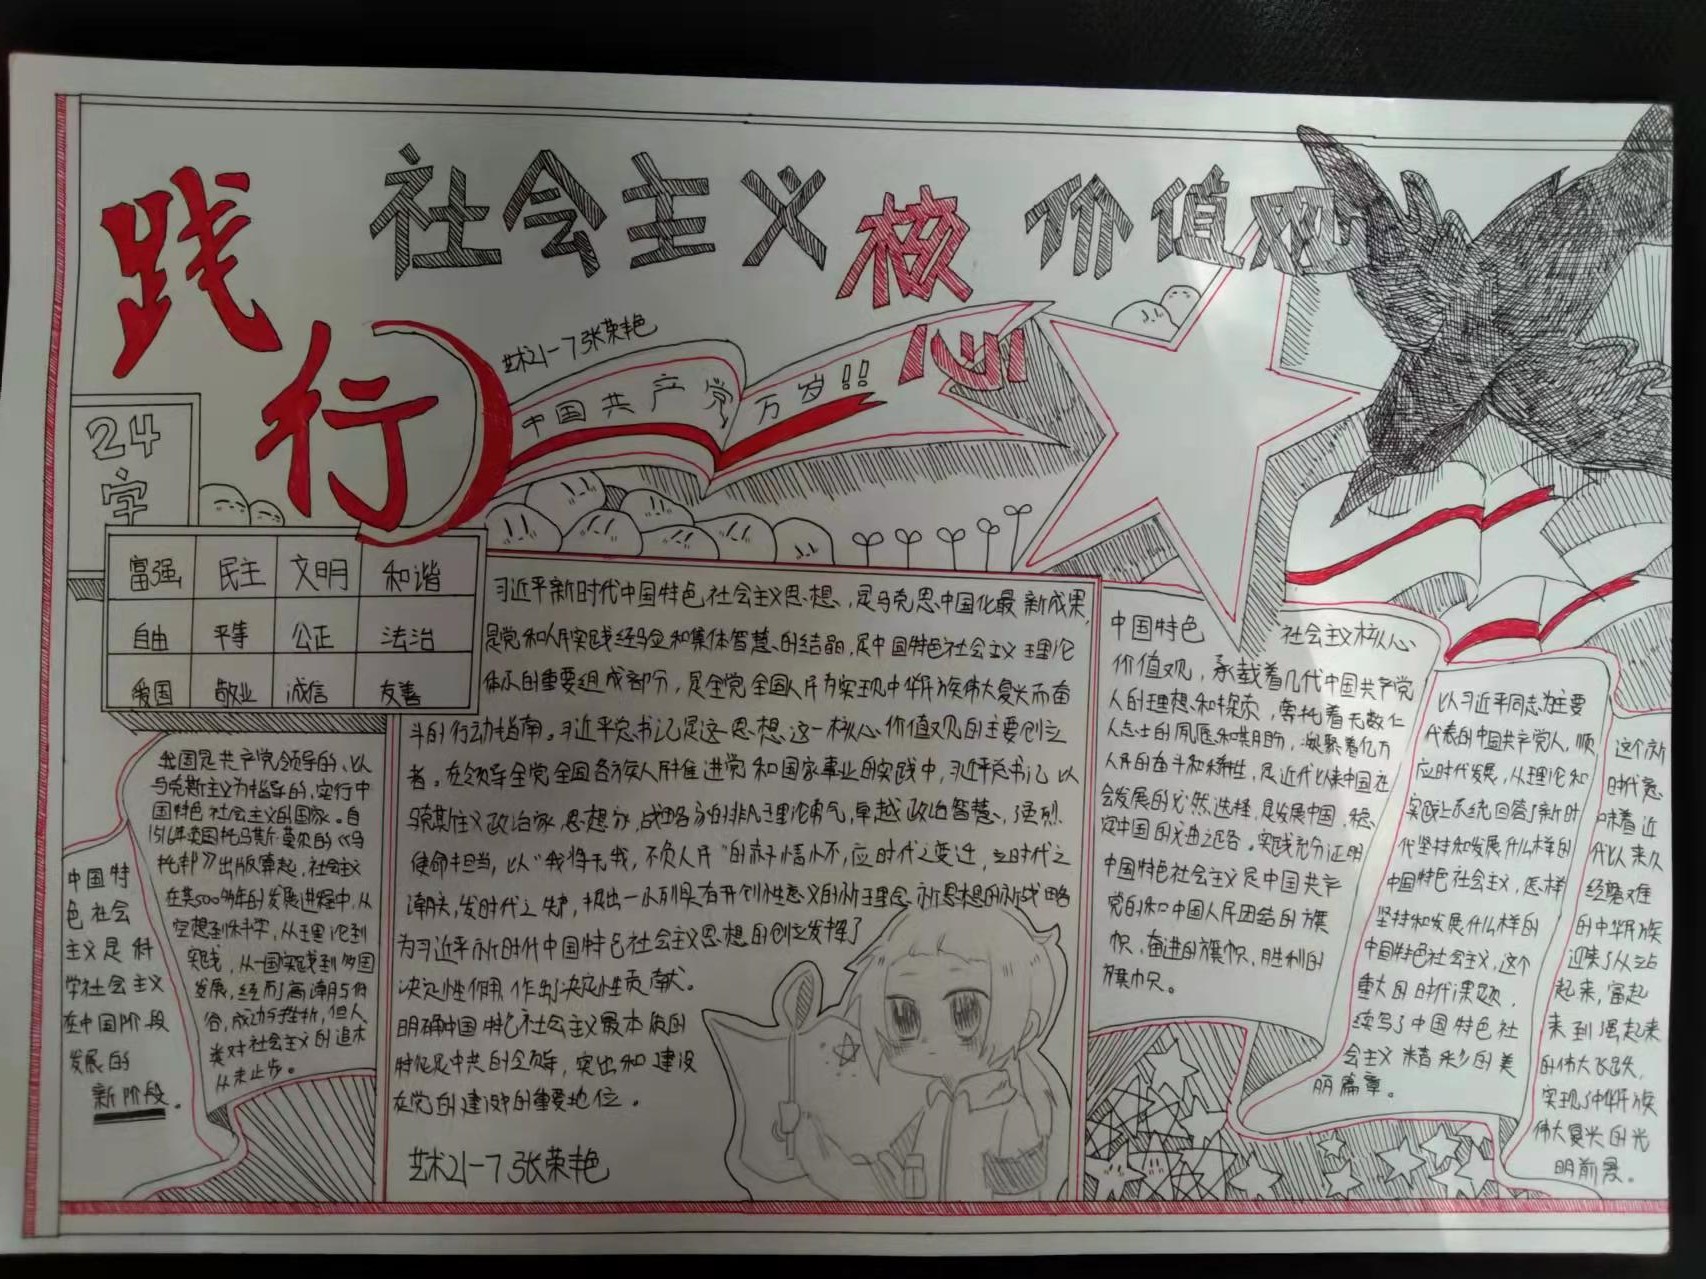 践行
社会主义核心价值观
艺术21-7张荣艳
中国共产党万岁!!
24
字
富强 民主 文明 和谐
自由 平等 公正 法治
爱国 敬业 诚信 友善
中国特
色社会
主义是科
学社会主义
在中国阶段
发展的
新阶段。
我国是共产党领导的、以
马克斯主义为指导的,实行中
国特色社会主义的国家。自
1516年英国托马斯·莫尔的《乌
托邦》出版算起,社会主义
在其500多年的发展进程中,从
空想到科学,从理论到
实践,从一国实践到多国
发展,经历了高潮与低
谷,成功与挫折,但人
类对社会主义的追求
从未止步。
习近平新时代中国特色社会主义思想,是马克思中国化最新成果,
是党和人民实践经验和集体智慧的结晶,是中国特色社会主义理论
体系的重要组成部分,是全党全国人民为实现中华民族伟大复兴而奋
斗的行动指南。习近平总书记是这一思想这一核心价值观的主要创立
者。在领导全党全国各族人民推进党和国家事业的实践中,习近平总书记以
马克斯主义政治家、思想家,战略家的非凡理论勇气,卓越政治智慧、强烈
使命担当,以“我将无我,不负人民”的赤子情怀,应时代之变迁,立时代之
潮头,发时代之先声,提出一系列具有开创性意义的新理念新思想的新战略
为习近平新时代中国特色社会主义思想的创立发挥了
决定性作用 作出了决定性贡献。
明确中国特色社会主义最本质的
特征是中共的领导,突出和建设
在党的建设中的重要地位。
艺术21-7张荣艳
中国特色 社会主义核心
价值观,承载着几代中国共产党
人的理想和探索,寄托着无数仁
人志士的夙愿和期盼,凝聚着亿万
人民的奋斗和牺牲,是近代以来中国社
会发展的必然选择,是发展中国、稳
定中国的必由之路。实践充分证明
中国特色社会主义是中国共产
党的和中国人民团结的旗
帜,奋进的旗帜,胜利的
旗帜。
以习近平同志为主要
代表的中国共产党人,顺
应时代发展,从理论和
实践上系统回答了新时
代坚持和发展什么样的
中国特色社会主义,怎样
坚持和发展什么样的
中国特色社会主义,这个
重大的时代课题,
续写了中国特色社
会主义精彩的美
丽篇章。
这个新
时代意
味着近
代以来久
经磨难
的中华民族
迎来了从站
起来,富起
来到强起来
的伟大飞跃,
实现了中华民族
伟大复兴的光
明前景。